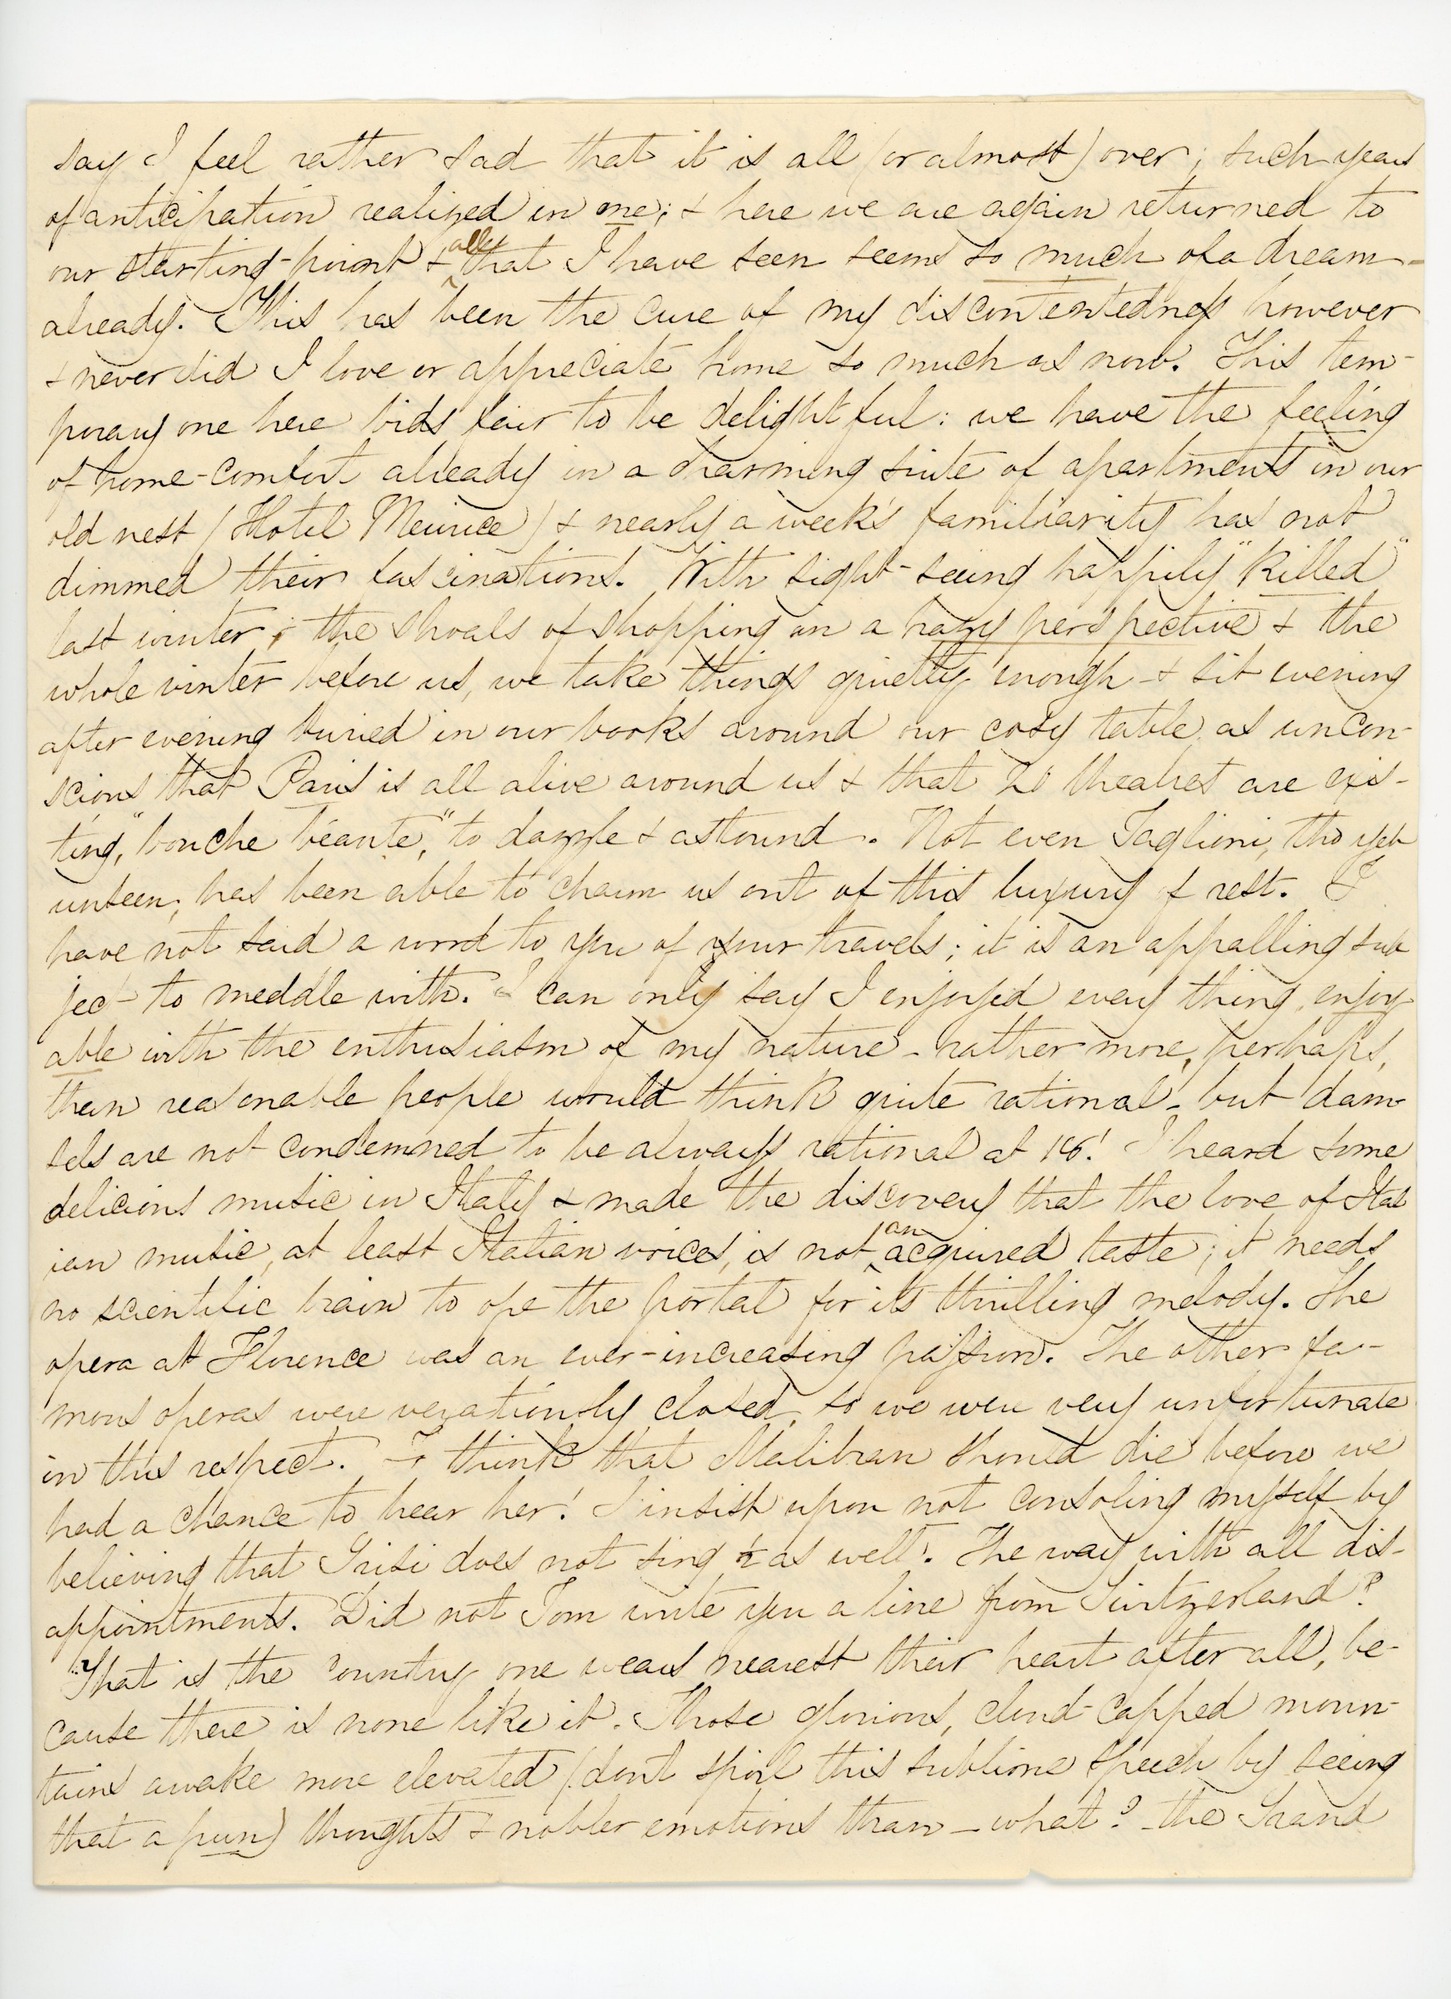 say I feel rather sad that it is all (or almost) over; such years
of anticipation realized in me; & here we are again returned to
our starting-point & all that I have seen seems so much of a dream
already. This has been the cure of my discontentedness however
& never did I love or appreciate home so much as now. This tem-
porary one here bids fair to be delightful: we have the feeling
of home-comfort already in a charming suite of apartments in our
old nest (Hotel Meurice) & nearly a week's familiarity has not
dimmed their fascinations. With sight-seeing happily "killed"
last winter, the shoals of shopping in a hazy perspective & the
whole winter before us, we take things quietly enough - & sit evening
after evening buried in our books around our cosy table, as uncon-
scious that Paris is all alive around us & that 20 theatres are exis-
ting, "bouche béante," to dazzle & astound. Not even Taglioni, tho yet
unseen, has been able to charm us out of this luxury of rest. I
have not said a word to you of your travels; it is an appalling sub
ject to meddle with. I can only say I enjoyed every thing enjoy-
able with the enthusiasm of my nature - rather more, perhaps,
than reasonable people would think quite rational - but dam-
sels are not condemned to be always rational at 16! I heard some
delicious music in Italy & made the discovery that the love of Ital
ian music, at least Italian voices, is not an acquired taste; it needs
no scientific brain to ope the portal for its thrilling melody. The
opera at Florence was an ever-increasing passion. The other fa-
mous operas were vexatiously closed, so we were very unfortunate
in this respect. To think that Malibran should die before we
had a chance to hear her! I insist upon not consoling myself by
believing that Grisi does not sing as well. The way with all dis-
appointments. Did not Tom write you a line from Switzerland?
That is the country one wears nearest their heart after all, be-
cause there is none like it. Those glorious, cloud-capped moun-
tains awake more elevated (dont spoil this sublime speech by seeing
that a pun) thoughts & nobler emotions than - what? - the Grand